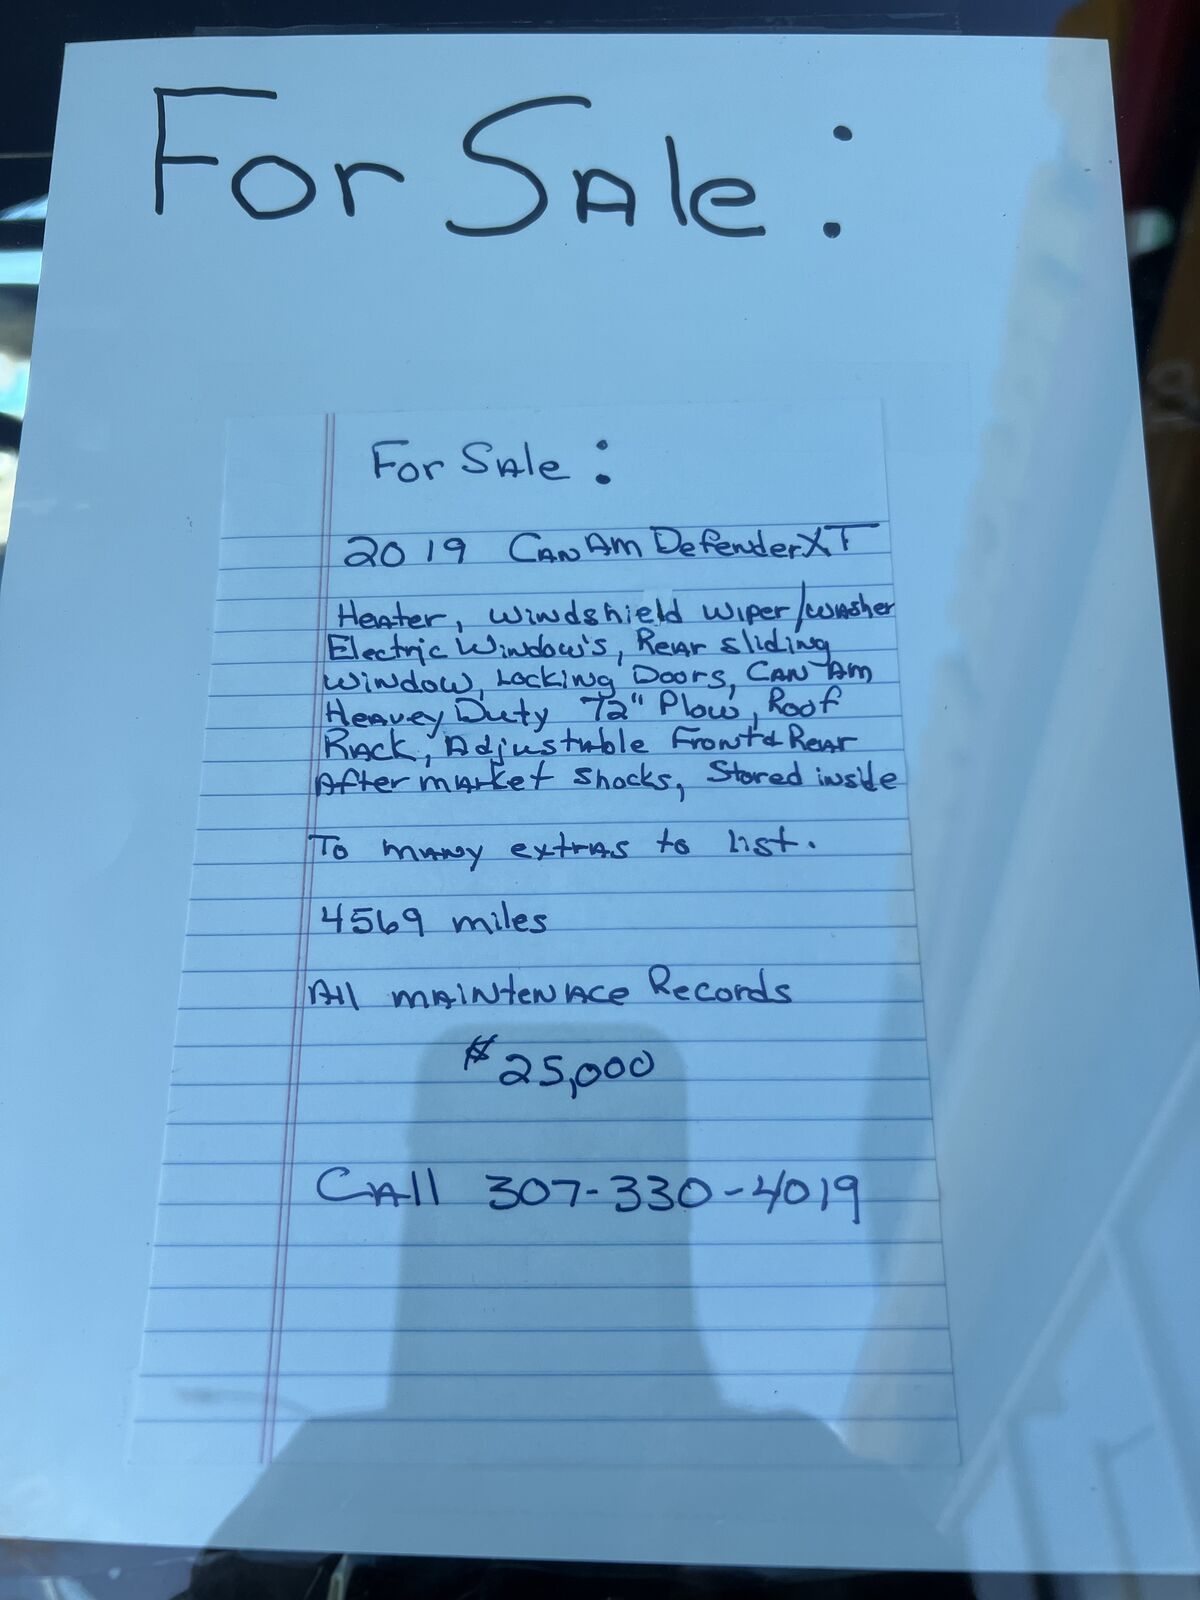 For Sale:
For Sale:
2019 Can Am Defender XT
Heater, Windshield wiper/washer
Electric Window's, Rear sliding
window, Locking Doors, Can Am
Heavey Duty 72" Plow, Roof
Rack, Adjustable Front & Rear
After market shocks, Stored inside
To many extras to list.
4569 miles
All maintenace Records
$25,000
Call 307-330-4019